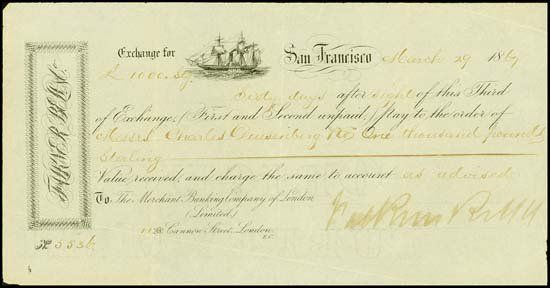 Exchange for San Francisco March 29 1869
£ 1000. Stg.
Sixty days after sight of this Third
of Exchange, (First and Second unpaid,) Pay to the order of
Messrs Charles Duisenberg & Co One thousand pounds
Sterling
Value received, and charge the same to account as advised
To The Merchant Banking Company of London
(Limited)
112 Cannon Street, London
E.C.
No 5536